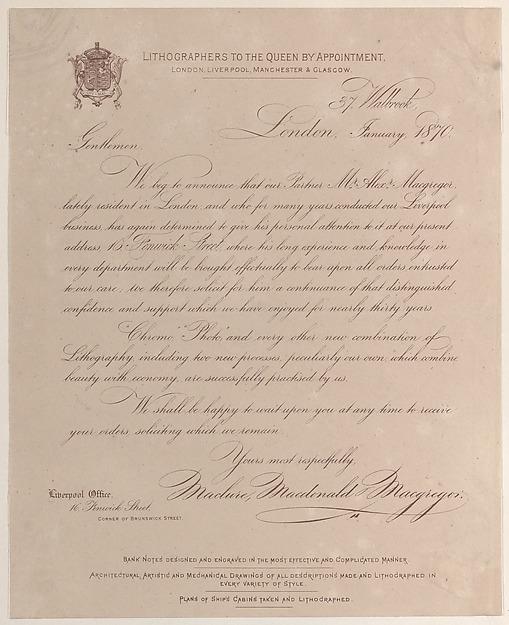 LITHOGRAPHERS TO THE QUEEN BY APPOINTMENT,
LONDON, LIVERPOOL, MANCHESTER & GLASGOW.
37, Walbrook,
London, January, 1870.
Gentlemen,
We beg to announce that our Partner Mr. Alexr. Macgregor,
lately resident in London, and who for many years conducted our Liverpool
business, has again determined to give his personal attention to it at our present
address, 16, Fenwick Street, where his long experience and knowledge in
every department will be brought effectually to bear upon all orders entrusted
to our care; we therefore solicit for him a continuance of that distinguished
confidence and support which we have enjoyed for nearly thirty years
"Chromo," "Photo," and every other new combination of
Lithography, including two new processes, peculiarly our own, which combine
beauty with economy, are successfully practised by us.
We shall be happy to wait upon you at any time to receive
your orders, soliciting which, we remain,
Yours most respectfully,
Maclure, Macdonald & Macgregor.
Liverpool Office,
16, Fenwick Street,
CORNER OF BRUNSWICK STREET.
BANK NOTES DESIGNED AND ENGRAVED IN THE MOST EFFECTIVE AND COMPLICATED MANNER
ARCHITECTURAL, ARTISTIC AND MECHANICAL DRAWINGS OF ALL DESCRIPTIONS MADE AND LITHOGRAPHED IN
EVERY VARIETY OF STYLE.
PLANS OF SHIP'S CABINS TAKEN AND LITHOGRAPHED.